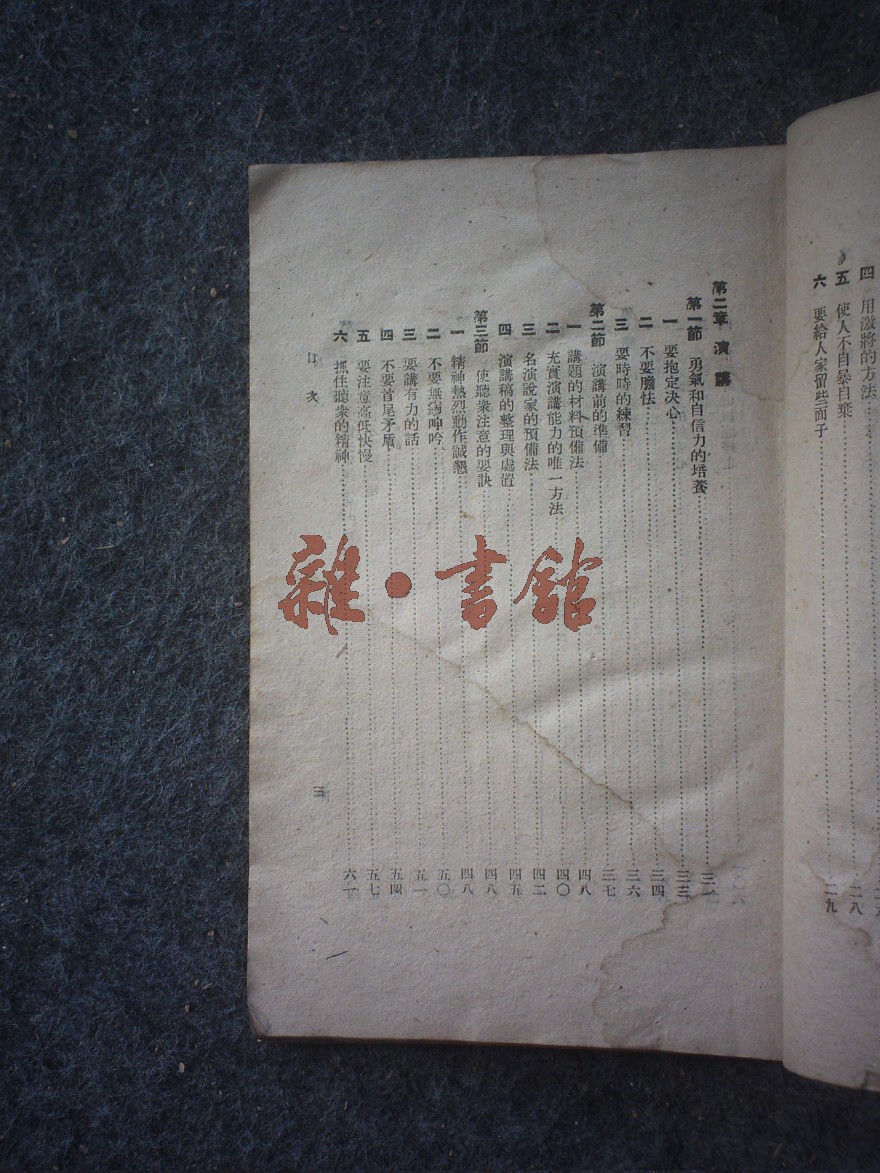 四 用激將的方法
五 使人不自暴自棄 二八
六 要給人家留些面子 二九
第二章 演講
第一節 勇氣和自信力的培養
一 要抱定决心 三三
二 不要膽怯 三四
三 要時時的練習 三六
第二節 演講前的準備 三七
一 講題的材料預備法
二 充實演講能力的唯一方法 四〇
三 名演說家的預備法 四二
四 演講稿的整理與處置 四五
第三節 使聽衆注意的要訣 四八
一 精神熱烈動作誠懇 四八
二 不要無病呻吟 五〇
三 要講有力的話 五一
四 不要首尾矛盾 五四
五 要注意高低快慢 五七
六 抓住聽衆的精神 六一
目次
三
雜·書館